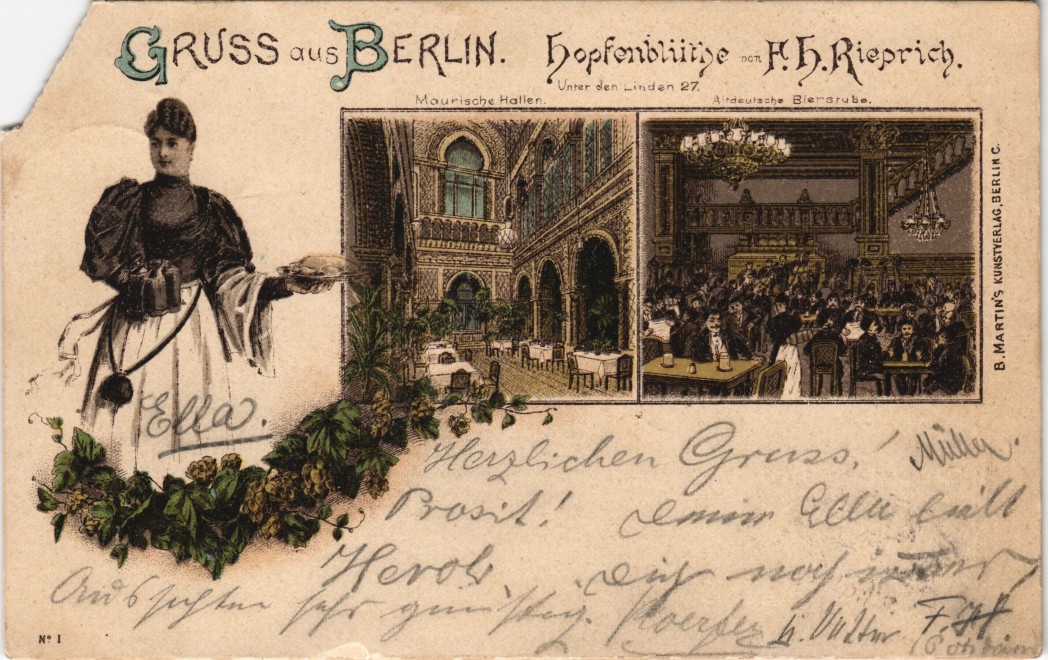 GRUSS aus BERLIN.
Hopfenblüthe von F. H. Rieprich.
Unter den Linden 27.
Maurische Hallen.
Altdeutsche Bierstube.
B. MARTIN'S KUNSTVERLAG, BERLIN C.
Ella.
Herzlichen Gruss!
Müller.
Prosit!
Deine Ella hält
Dich noch immer
Aussichten sehr günstig.
No 1